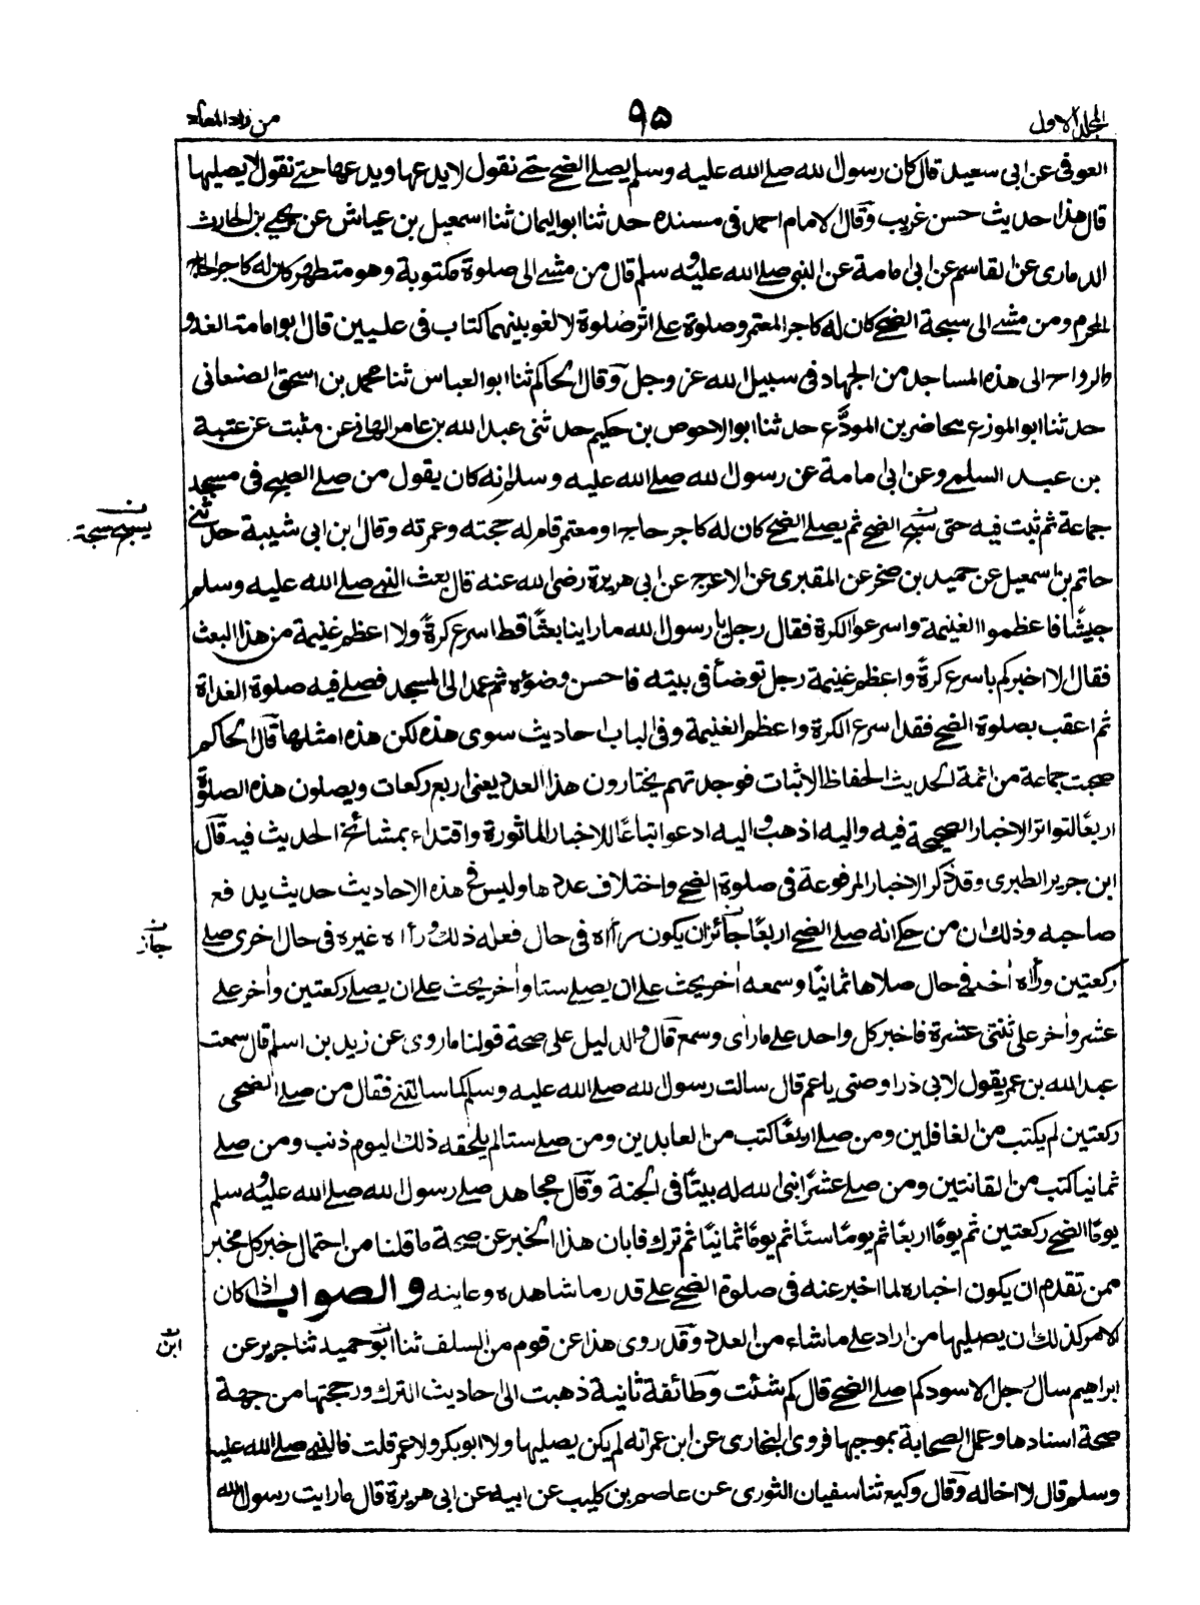 المجلد الاول
٩٥
من زاد المعاد
العوفى عن ابى سعيد قال كان رسول الله صلى الله عليه وسلم يصلى الضحى حتى نقول لا يدعها ويدعها حتى نقول لا يصليها
قال هذا حديث حسن غريب وقال الامام احمد فى مسنده حدثنا ابو اليمان ثنا اسمعيل بن عياش عن يحيى بن الحارث
الدمارى عن القاسم عن ابى امامة عن النبى صلى الله عليه وسلم قال من مشى الى صلوة مكتوبة وهو متطهر كان له كاجر الحاج
المحرم ومن مشى الى سبحة الضحى كان له كاجر المعتمر وصلوة على اثر صلوة لا لغو بينهما كتاب فى عليين قال ابو امامة الغدو
والرواح الى هذه المساجد من الجهاد فى سبيل الله عز وجل وقال الحاكم ثنا ابو العباس ثنا محمد بن اسحق الصنعانى
حدثنا ابو الموزع محاضر بن المودع حدثنا ابو الاحوص بن حكيم حدثنى عبد الله بن عامر الهانى عن مثبت عن عتبة
بن عبد السلمى وعن ابى امامة عن رسول الله صلى الله عليه وسلم انه كان يقول من صلى الصبح فى مسجد
جماعة ثم ثبت فيه حتى الضحى ثم يصلى الضحى كان له كاجر حاج او معتمر تام له حجته وعمرته وقال ابن ابى شيبة حدثنى
حاتم بن اسمعيل عن حميد بن صخر عن المقبرى عن الاعرج عن ابى هريرة رضى الله عنه قال بعث النبى صلى الله عليه وسلم
جيشًا فاعظموا الغنيمة واسرعوا الكرة فقال رجل يا رسول الله ما راينا بعثًا قط اسرع كرةً ولا اعظم غنيمة من هذا البعث
فقال الا اخبركم باسرع كرةً واعظم غنيمة رجل توضأ فى بيته فاحسن وضوءه ثم عمد الى المسجد فصلى فيه صلوة الغداة
ثم اعقب بصلوة الضحى فقد اسرع الكرة واعظم الغنيمة وفى الباب احاديث سوى هذه لكن هذه امثلها قال الحاكم
صحبت جماعة من ائمة الحديث الحفاظ الاثبات فوجدتهم يختارون هذا العدد يعنى اربع ركعات ويصلون هذه الصلوة
اربعًا لتواتر الاخبار الصحيحة فيه واليه اذهب واليه ادعو اتباعًا للاخبار الماثورة واقتداء بمشائخ الحديث فيه قال
ابن جرير الطبرى وقد ذكر الاخبار المرفوعة فى صلوة الضحى واختلاف عددها وليس فى هذه الاحاديث حديث يدفع
صاحبه وذلك ان من حكى انه صلى الضحى اربعًا جائز ان يكون راٰه فى حال فعله ذلك وراٰه غيره فى حال اخرى صلى
ركعتين وراٰه اٰخر فى حال صلاها ثمانيًا وسمعه اٰخر يحث على ان يصلى ستا واٰخر يحث على ان يصلى ركعتين واٰخر على
عشر واٰخر على ثنتى عشرة فاخبر كل واحد على ما راى وسمع قال والدليل على صحة قولنا ما روى عن زيد بن اسلم قال سمعت
عبد الله بن عمر يقول لابى ذر اوصنى يا عم قال سالت رسول الله صلى الله عليه وسلم كما سالتنى فقال من صلى الضحى
ركعتين لم يكتب من الغافلين ومن صلى اربعًا كتب من العابدين ومن صلى ستا لم يلحقه ذلك اليوم ذنب ومن صلى
ثمانيا كتب من القانتين ومن صلى عشرًا بنى الله له بيتًا فى الجنة وقال مجاهد صلى رسول الله صلى الله عليه وسلم
يومًا الضحى ركعتين ثم يومًا اربعًا ثم يومًا ستًا ثم يومًا ثمانيًا ثم ترك فابان هذا الخبر عن صحة ما قلنا من احتمال خبر كل مخبر
ممن تقدم ان يكون اخباره لما اخبر عنه فى صلوة الضحى على قدر ما شاهده وعاينه والصواب اذا كان
الامر كذلك ان يصليها من اراد على ما شاء من العدد وقد روى هذا عن قوم من السلف ثنا ابو حميد ثنا جرير عن
ابراهيم سال رجل الاسود كم اصلى الضحى قال كم شئت وطائفة ثانية ذهبت الى احاديث الترك ورجحتها من جهة
صحة اسنادها وعمل الصحابة بموجبها فروى البخارى عن ابن عمر انه لم يكن يصليها ولا ابو بكر ولا عمر قلت فالنبى صلى الله عليه
وسلم قال لا اخاله وقال وكيع ثنا سفيان الثورى عن عاصم بن كليب عن ابيه عن ابى هريرة قال ما رايت رسول الله
جاز
ابن